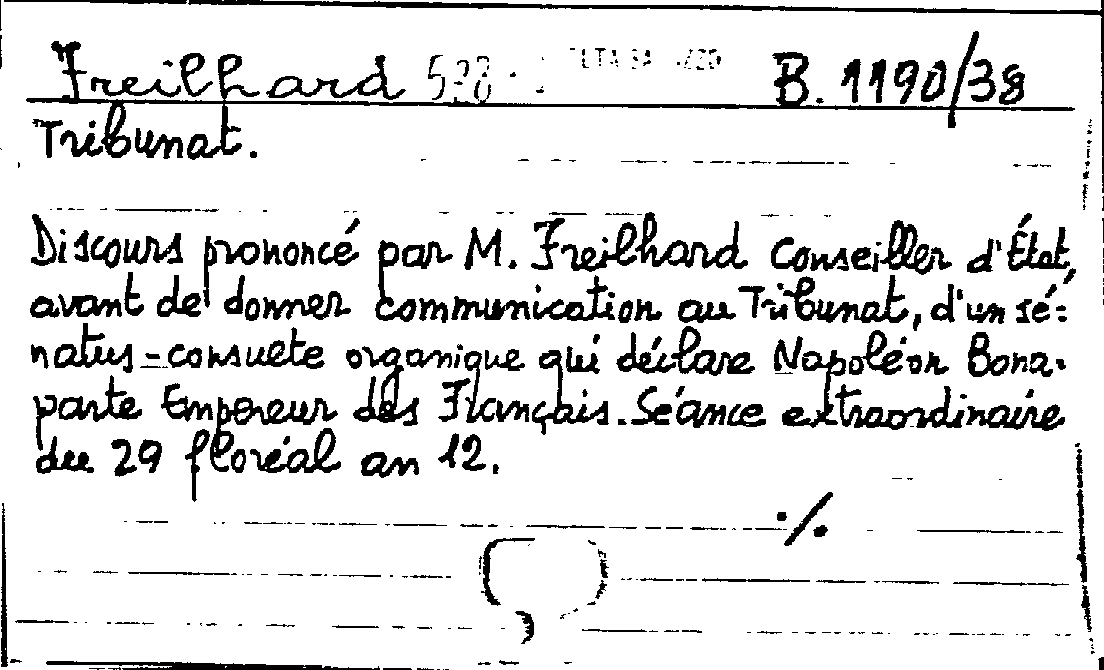 Treilhard B. 1190/38
Tribunat.
Discours prononcé par M. Treilhard Conseiller d'État,
avant de donner communication au Tribunat, d'un sé=
natus-consulte organique qui déclare Napoléon Bona-
parte Empereur des Français. Séance extraordinaire
du 29 floréal an 12.
./.